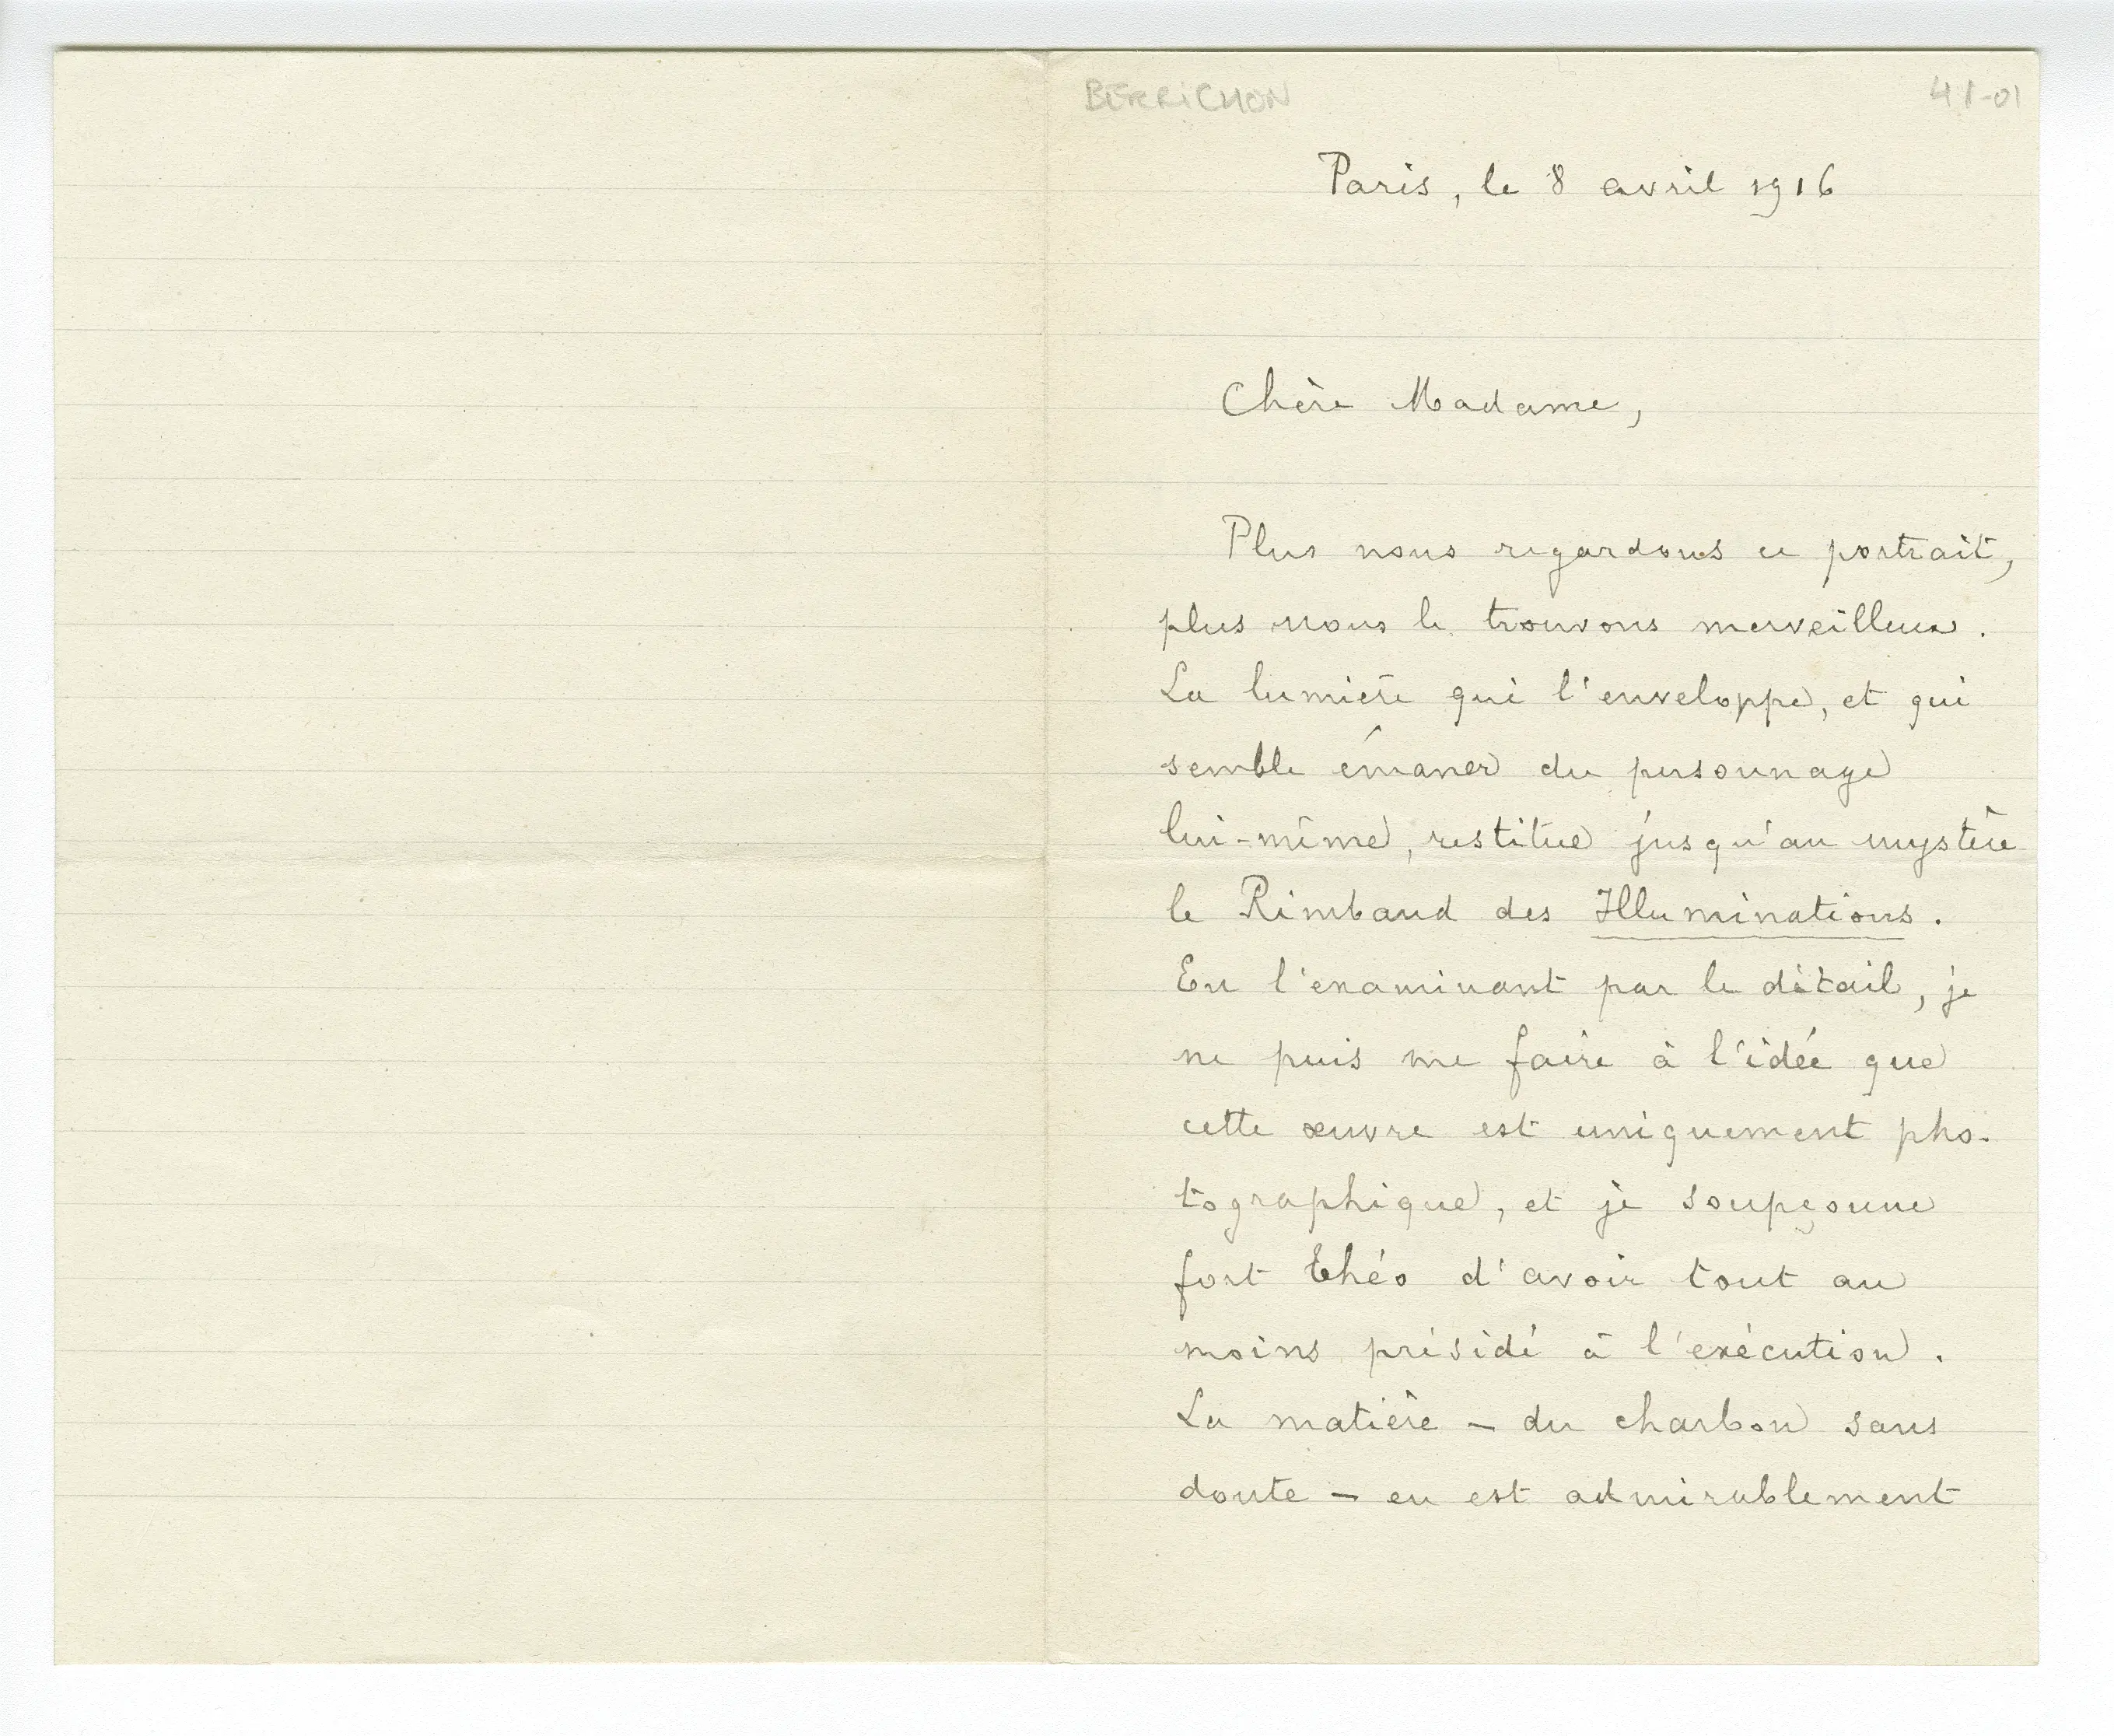 BERRICHON
41-01
Paris, le 8 avril 1916
Chère Madame,
Plus nous regardons ce portrait,
plus nous le trouvons merveilleux.
La lumière qui l'enveloppe, et qui
semble émaner du personnage
lui-même, restitue jusqu'au mystère
le Rimbaud des Illuminations.
En l'examinant par le détail, je
ne puis me faire à l'idée que
cette œuvre est uniquement pho-
tographique, et je soupçonne
fort Théo d'avoir tout au
moins présidé à l'exécution.
La matière – du charbon sans
doute – en est admirablement